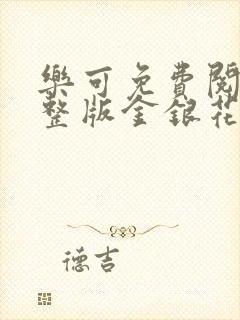 樂可免費閱
整版金銀花
德吉